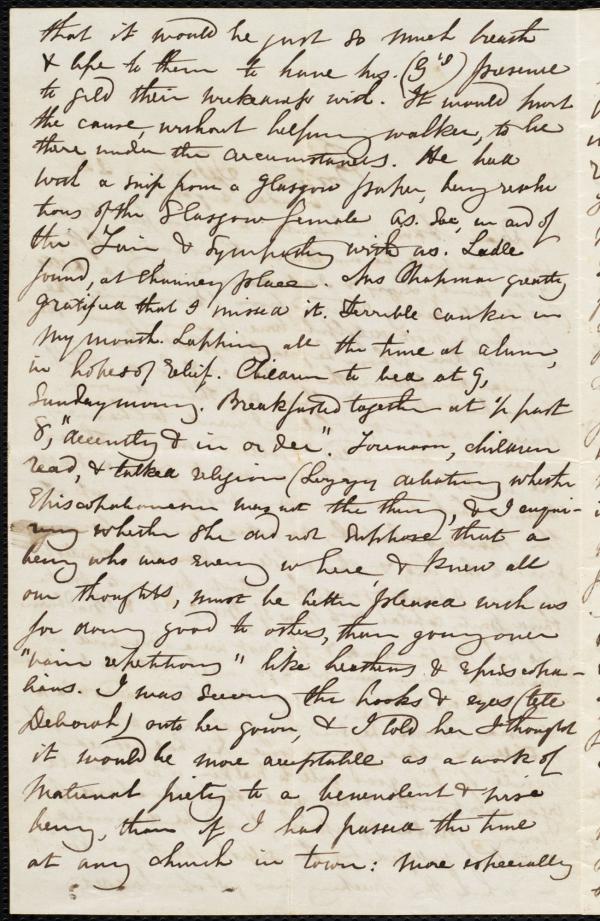 that it would be just so much breath
& life to them to have his. (G's) presence
to gild their with. It would hurt
the cause, without helping walker, to be
there under the circumstances. He had
with a snip from a Glasgow paper, being resolu
tions of the Glasgow female as. soc, in aid of
the Fair, & Sympathy with us. Ladle
found, at Chauncy place. Mrs Chapman greatly
gratified that I missed it. Terrible canker in
my mouth. Lapping all the time at alum,
in hopes of relief. Children to bed at 9,
Sunday morng. Breakfasted together at ½ past
8, "decently & in order". Forenoon, children
read, & talked religion (Lizzy debating whether
Episcopalianism was not the thing, & I enqui-
ring whether she did not suppose that a
being who was every where, & knew all
our thoughts, must be better pleased with us
for doing good to others, than going over
"vain repetitions" like heathens & Episcopa-
lians. I was sewing the hooks & eyes (tete
Deborah) onto her gown, & I told her I thought
it would be more acceptable as a work of
Maternal piety to a benevolent & wise
being, than if I had passed the time
at any church in town: more especially